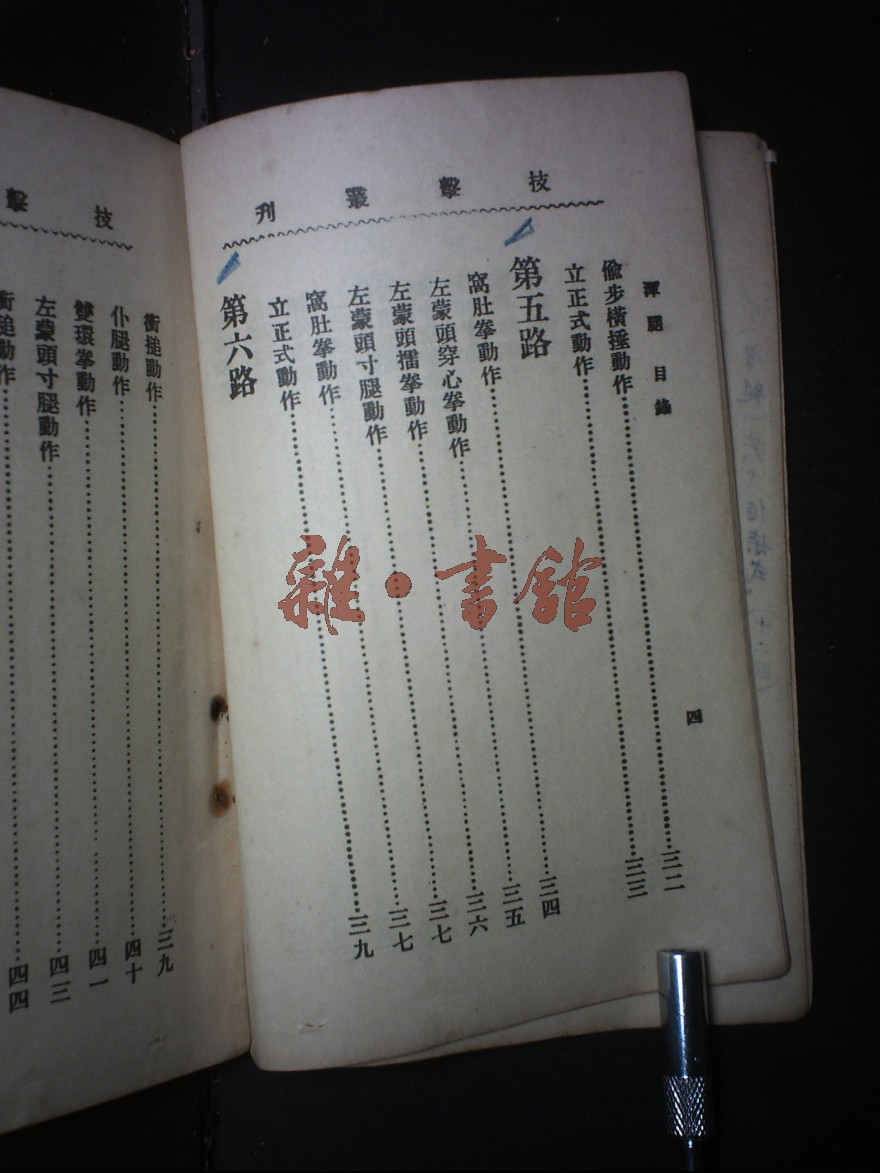 技擊叢刊
潭腿 目錄 四
偷步橫捶動作……三二
立正式動作……三三
第五路
窩肚拳動作……三四
左蒙頭穿心拳動作……三五
左蒙頭擂拳動作……三六
左蒙頭寸腿動作……三七
窩肚拳動作……三七
立正式動作……三九
第六路
技擊
衝搥動作……三九
仆腿動作……四十
雙環拳動作……四一
左蒙頭寸腿動作……四三
衝搥動作……四四
雜·書館